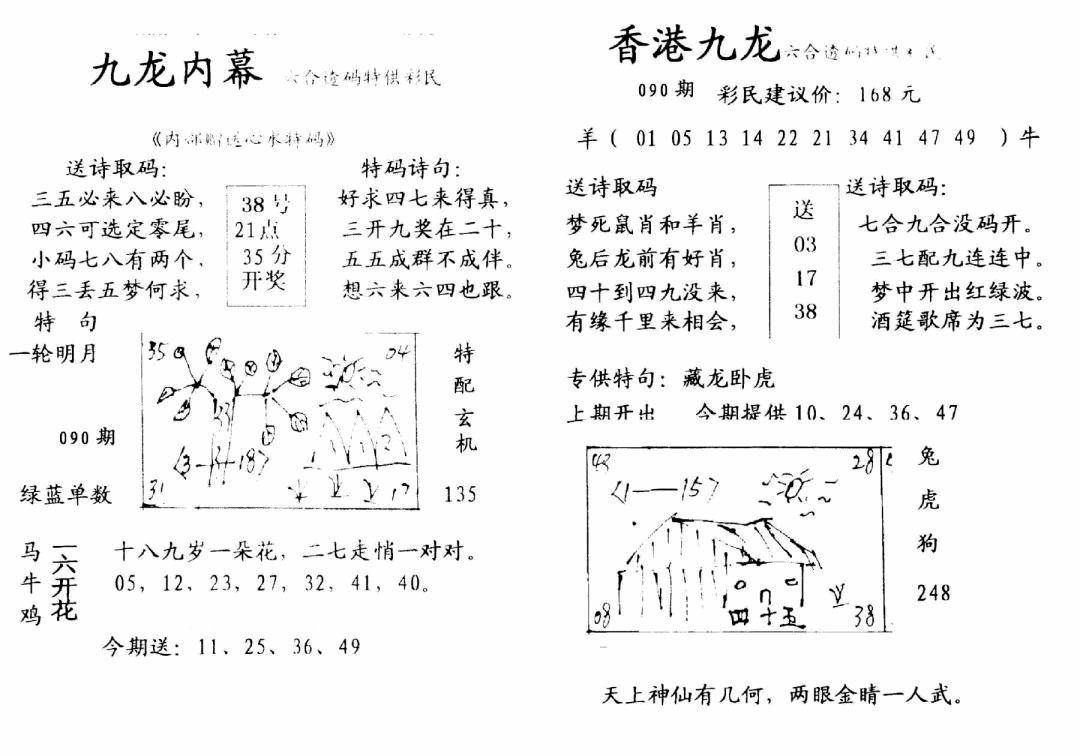 九龙内幕 六合透码特供彩民
《内部赠送心水特码》
送诗取码：
三五必来八必盼，
四六可选定零尾，
小码七八有两个，
得三丢五梦何求，
38号
21点
35分
开奖
特码诗句：
好求四七来得真，
三开九奖在二十，
五五成群不成伴。
想六来六四也跟。
特 句
一轮明月
090期
绿蓝单数
35
04
33
13-4-187
31
17
特配玄机
135
马牛鸡
一六开花
十八九岁一朵花，二七走悄一对对。
05，12，23，27，32，41，40。
今期送：11、25、36、49
香港九龙 六合透码特供彩民
090期 彩民建议价：168元
羊（ 01 05 13 14 22 21 34 41 47 49 ）牛
送诗取码
梦死鼠肖和羊肖，
兔后龙前有好肖，
四十到四九没来，
有缘千里来相会，
送
03
17
38
送诗取码：
七合九合没码开。
三七配九连连中。
梦中开出红绿波。
酒筵歌席为三七。
专供特句：藏龙卧虎
上期开出 今期提供10、24、36、47
42
28
21——157
08
四十五
38
兔
虎
狗
248
天上神仙有几何，两眼金睛一人武。